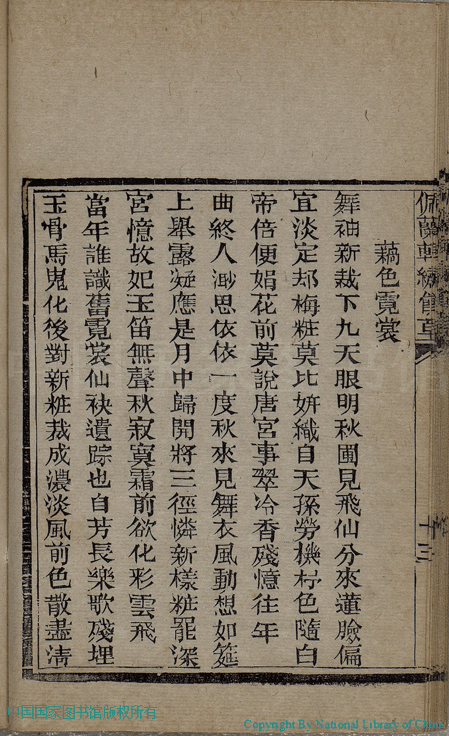 佩蘭軒繡餘草 十三
藕色霓裳
舞袖新裁下九天眼明秋圃見飛仙分來蓮臉偏
宜淡定却梅粧莫比妍織自天孫勞機杼色隨白
帝倍便娟花前莫說唐宮事翠冷香殘憶往年
曲終人渺思依依一度秋來見舞衣風動想如筵
上舉露凝應是月中歸開將三徑憐新樣粧罷深
宮憶故妃玉笛無聲秋寂寞霜前欲化彩雲飛
當年誰識舊霓裳仙袂遺踪也自芳長樂歌殘埋
玉骨馬嵬化後對新粧裁成濃淡風前色散盡清
中国国家图书馆版权所有
Copyright By National Library of China